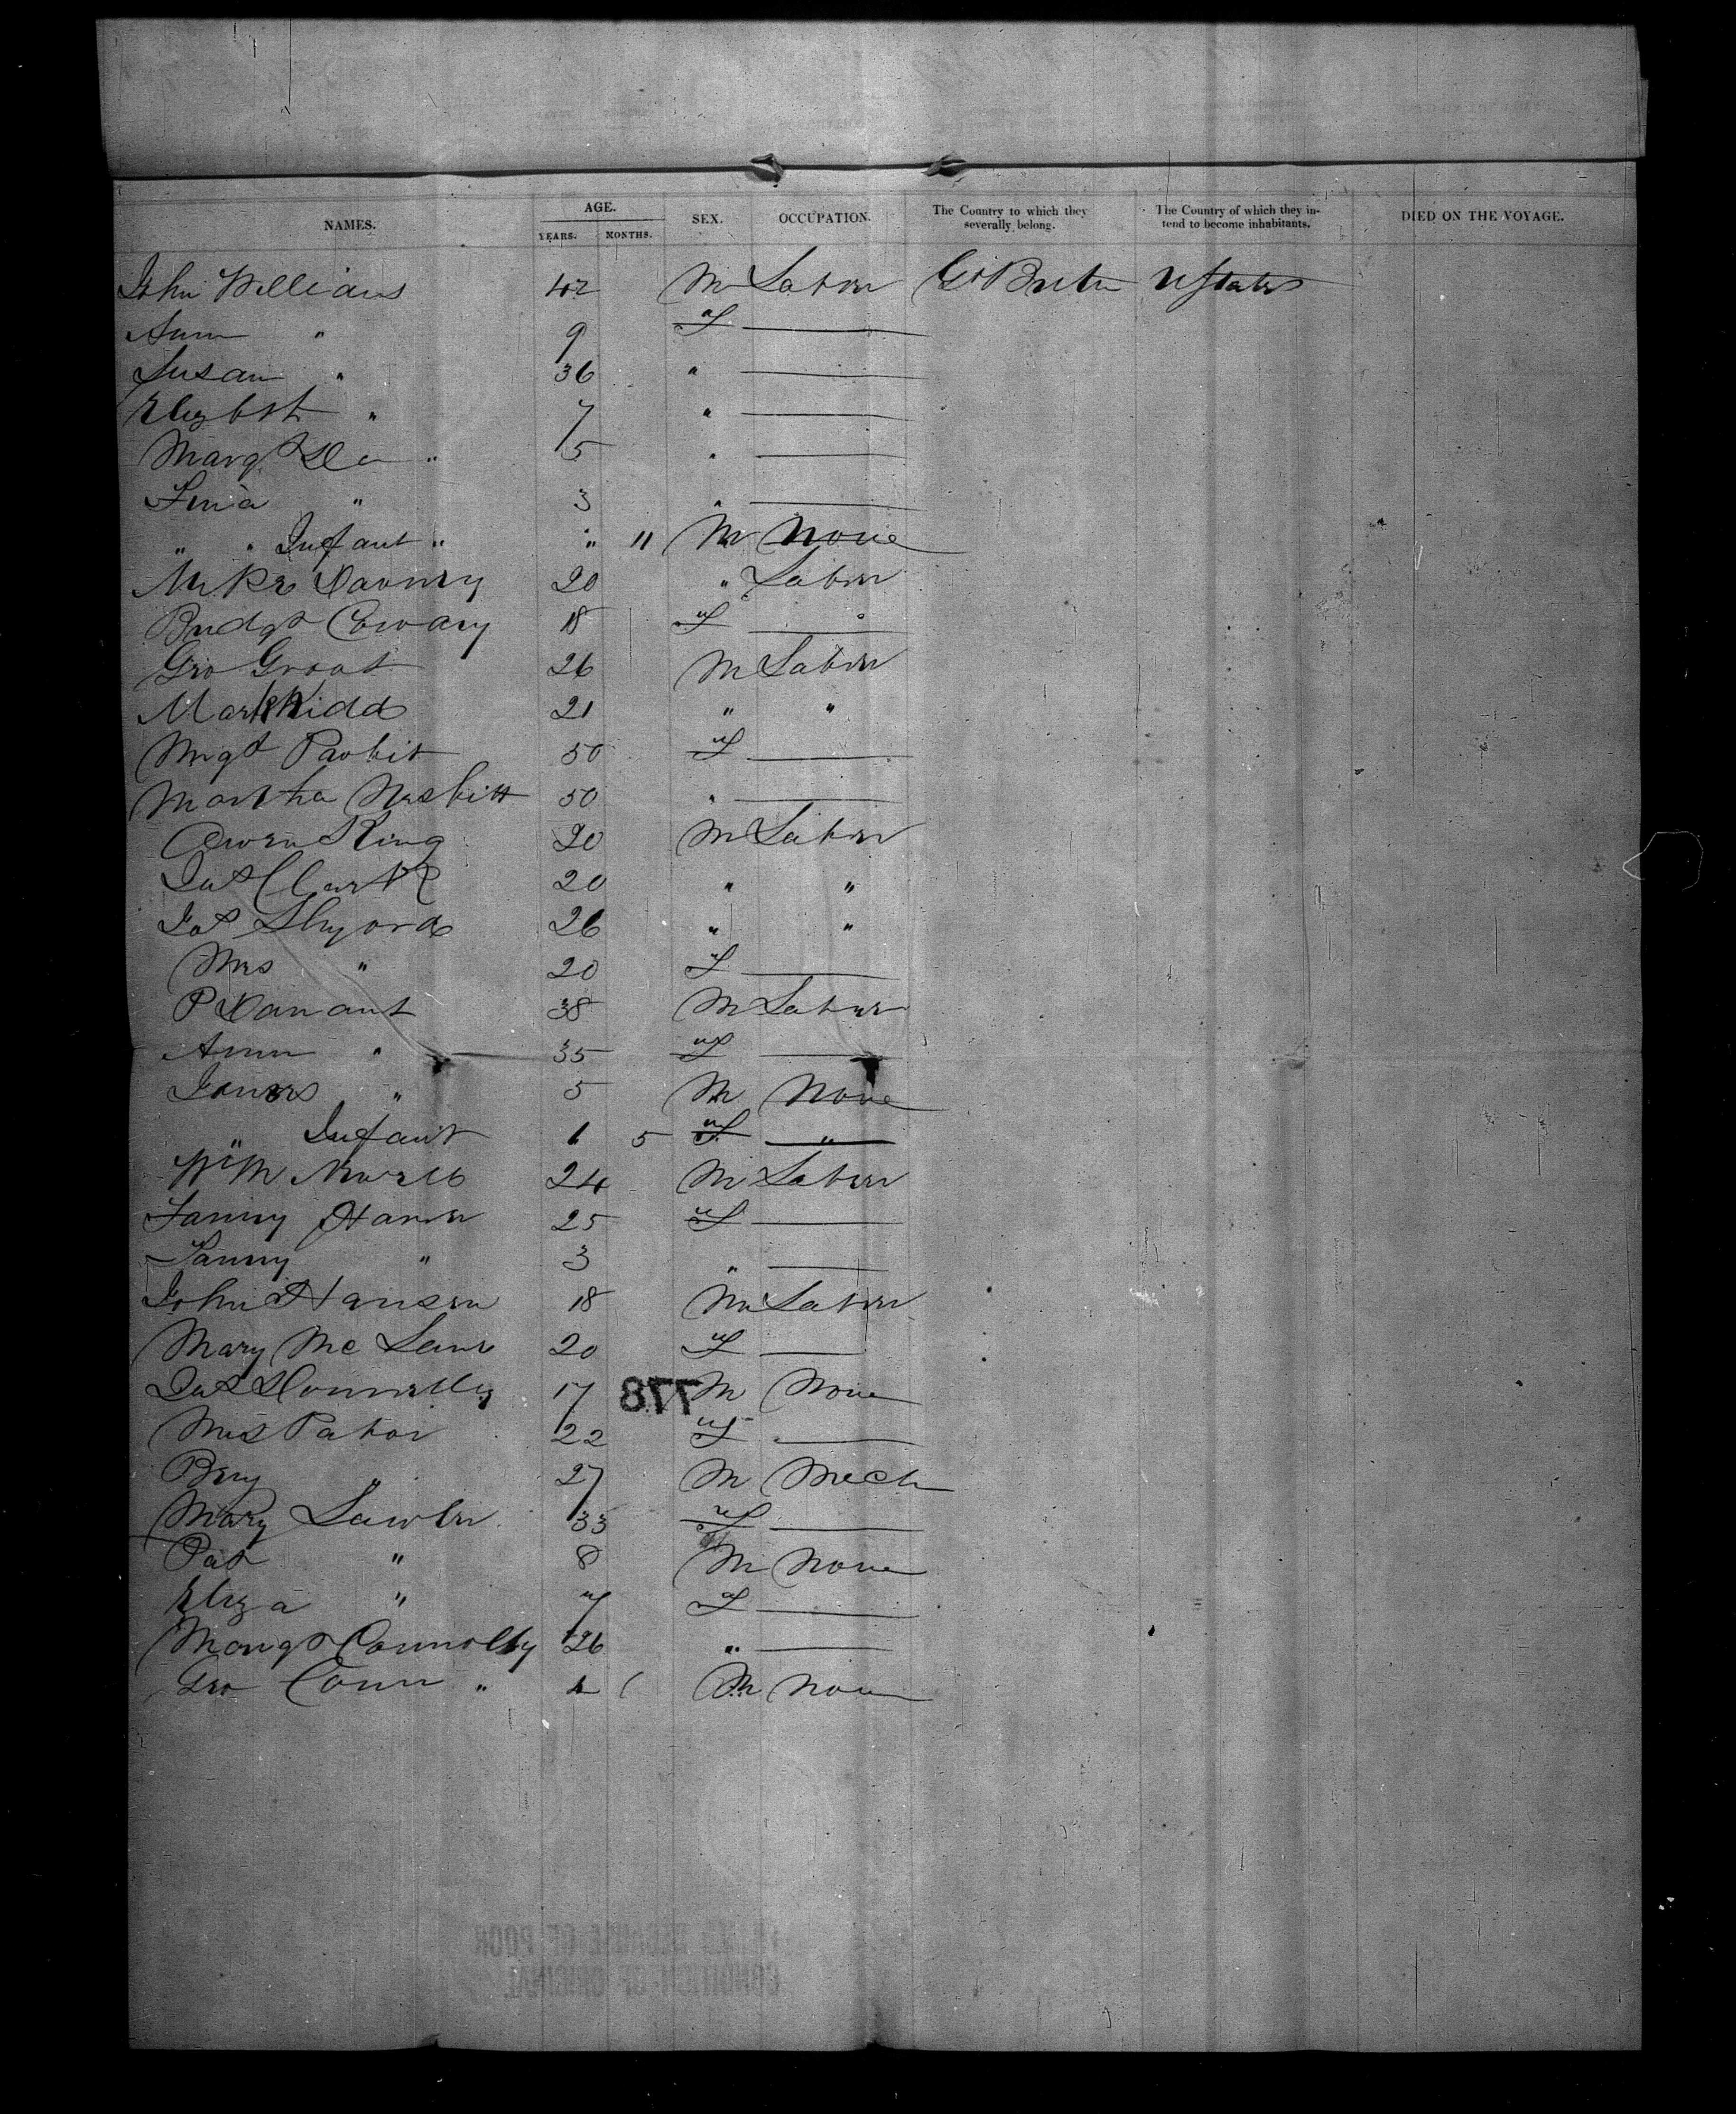 NAMES. AGE. SEX. OCCUPATION. The Country to which they severally belong. The Country of which they intend to become inhabitants. DIED ON THE VOYAGE.
YEARS. MONTHS.
John Williams 42 M Labor Gt Britn U States
Ann " 9 f
Susan " 36 "
Elizbth " 7 "
Margt " 5 "
" 3 "
" " Infant " " 11 M None
Mike 20 " Labor
Bridgt 18 f
Geo Groat 26 M Labor
Mark Kidd 21 " "
Mrgt 50 f
Martha Nesbitt 50 "
Owen King 20 M Labor
Jas Clark 20 " "
Jas 26 " "
Mrs " 20 f
P 38 M Labor
Ann " 35 f
James " 5 M None
" Infant 1 5 f "
Wm 24 M Labor
Fanny 25 f
Fanny " 3 "
John Hansen 18 M Labor
Mary Mc 20 f
Jas Donnelly 17 M None
877
Mrs Pabor 22 f
Benj " 27 M Mech
Mary Lawler 33 f
Pat " 8 M None
Eliza " 7 f
Margt Connolly 26 "
Geo Conn " M None
BECAUSE OF POOR
CONDITION OF ORIGINAL